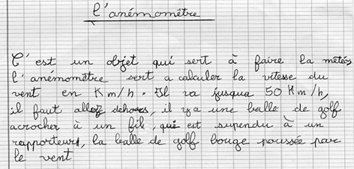 l'anémomètre
C'est un objet qui sert à faire la météo,
l'anémomètre sert a calculer la vitesse du
vent en Km/h. Il va jusqua 50 Km/h,
il faut allez dehors, il y a une balle de golf
acrocher à un fil, qui est supendu à un
rapporteur, la balle de golf bouge poussée par
le vent